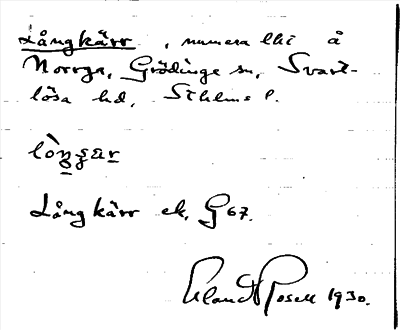 Långkärr, numera lht å
Norrga, Grödinge sn, Svart-
lösa hd, Sthlms l.
lòŋgär
Långkärr ek, G 67.
Erland Rosell 1930.